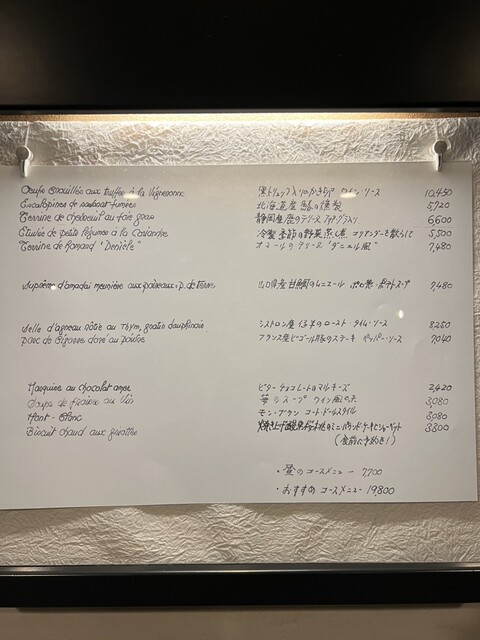 Oeufs Brouillés aux truffes à la Vigneronne 黒トリュフ入りのかきたまご ワイン・ソース 10,450
Escalopines de maabout fumées 北海道産 の燻製 5,720
Terrine de Chevreuil au foie gras 静岡産鹿のテリーヌ フォアグラ入り 6,600
Etuvée de petits légumes à la Coriandre 冷製 季節の野菜蒸し煮 コリアンダーを散らして 5,500
Terrine de Homard "Denièle" オマールのテリーヌ "ダニエル風" 7,480
Suprême d'amadai meunière aux poireaux, p. de terre 山口県産甘鯛のムニエール ポロ葱・ポテトスープ 7,480
Selle d'agneau rôtie au Thym, gratin dauphinois シストロン産 仔羊のロースト・タイム・ソース 8,250
porc de Bigorre doré au poivre フランス産ビゴール豚のステーキ ペッパー・ソース 7,040
Marquise au chocolat amer ビターチョコレートのマルキーズ 2,420
Soupe de fraises au Vin 苺のスープ ワイン風味 3,080
Mont-Blanc モン・ブラン コートドールスタイル 3,080
Biscuit chaud aux 3,300
(食前に予約を!)
・昼のコースメニュー 7,700
・おすすめ コースメニュー 19,800